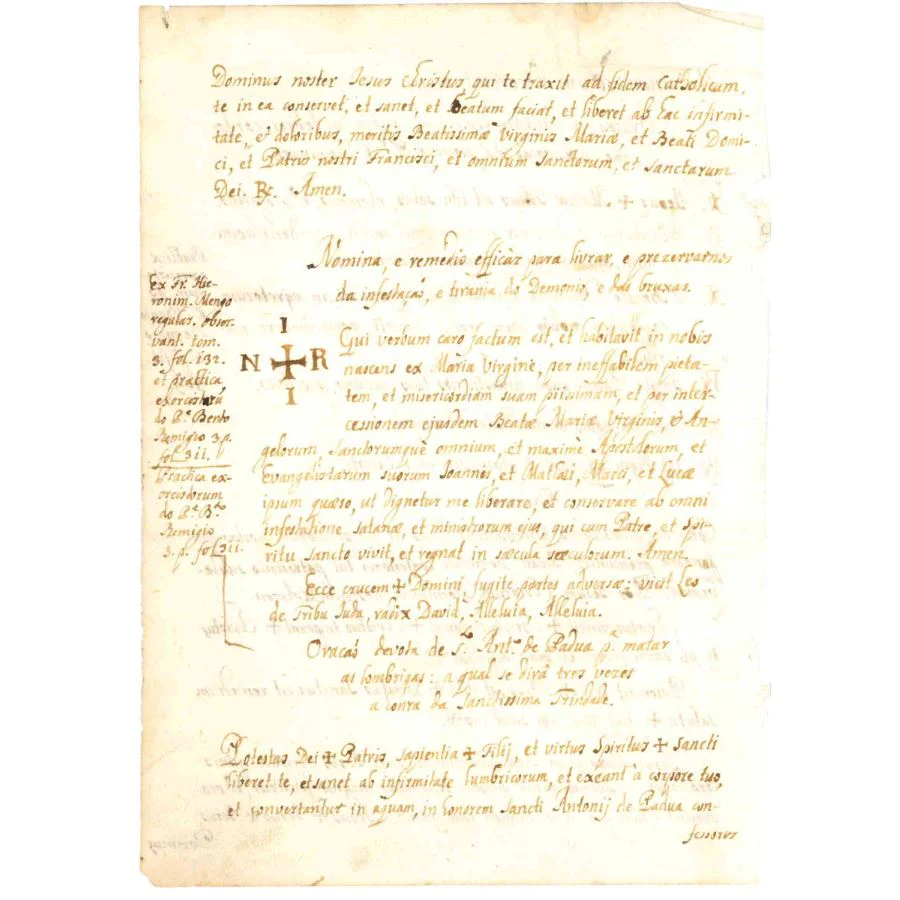 Dominus noster Jesus Christus, qui te traxit ad fidem Catholicam,
te in ea conservet, et sanet, et Beatum faciat, et liberet ab hac infirmi-
tate, et doloribus, meritis Beatissimæ Virginis Mariæ, et Beati Domi-
ci, et Patris nostri Francisci, et omnium Sanctorum, et Sanctarum
Dei. ℟. Amen.
Nómina, e remedio efficàz para livrar, e prezervarnos
da infestaçaõ, e tirania do Demonio, e das bruxas.
Ex Fr. Hie-
ronim. Mengo
regular. obser-
vant. tom.
3. fol. 132.
et practica
exorcistarũ
do P.e Bento
Remigio 3. p.
fol. 311.
Practica ex-
orcistorum
do P.e B.to
Remigio
3. p. fol. 311.
I
N ✠ R
I
Qui verbum caro factum est, et habitavit in nobis
nascens ex Maria Virgine, per ineffabilem pieta-
tem, et misericordiam suam piissimam, et per inter-
cessionem ejusdem Beatæ Mariæ Virginis, & An-
gelorum, Sanctorumquè omnium, et maximè Apostolorum, et
Evangelistarum suorum Joannis, et Mathæi, Marci, et Lucæ
ipsum quæso, ut dignetur me liberare, et conservare ab omni
infestatione satanæ, et ministrorum ejus, qui cum Patre, et Spi-
ritu Sancto vivit, et regnat in sæcula sæculorum. Amen.
Ecce crucem ✠ Domini fugite partes adversæ: vicit Leo
de Tribu Juda, radix David, Alleluia, Alleluia.
Oraçaõ devota de S.to Ant.o de Padua p.a matar
as lombrigas: a qual se dirà tres vezes
a honra da Sanctissima Trindade.
Potestas Dei ✠ Patris, sapientia ✠ Filij, et virtus Spiritus ✠ Sancti
liberet te, et sanet ab infirmitate lumbricorum, et exeant à corpore tuo,
et convertantur in aquam, in honorem Sancti Antonij de Padua con-
fessores